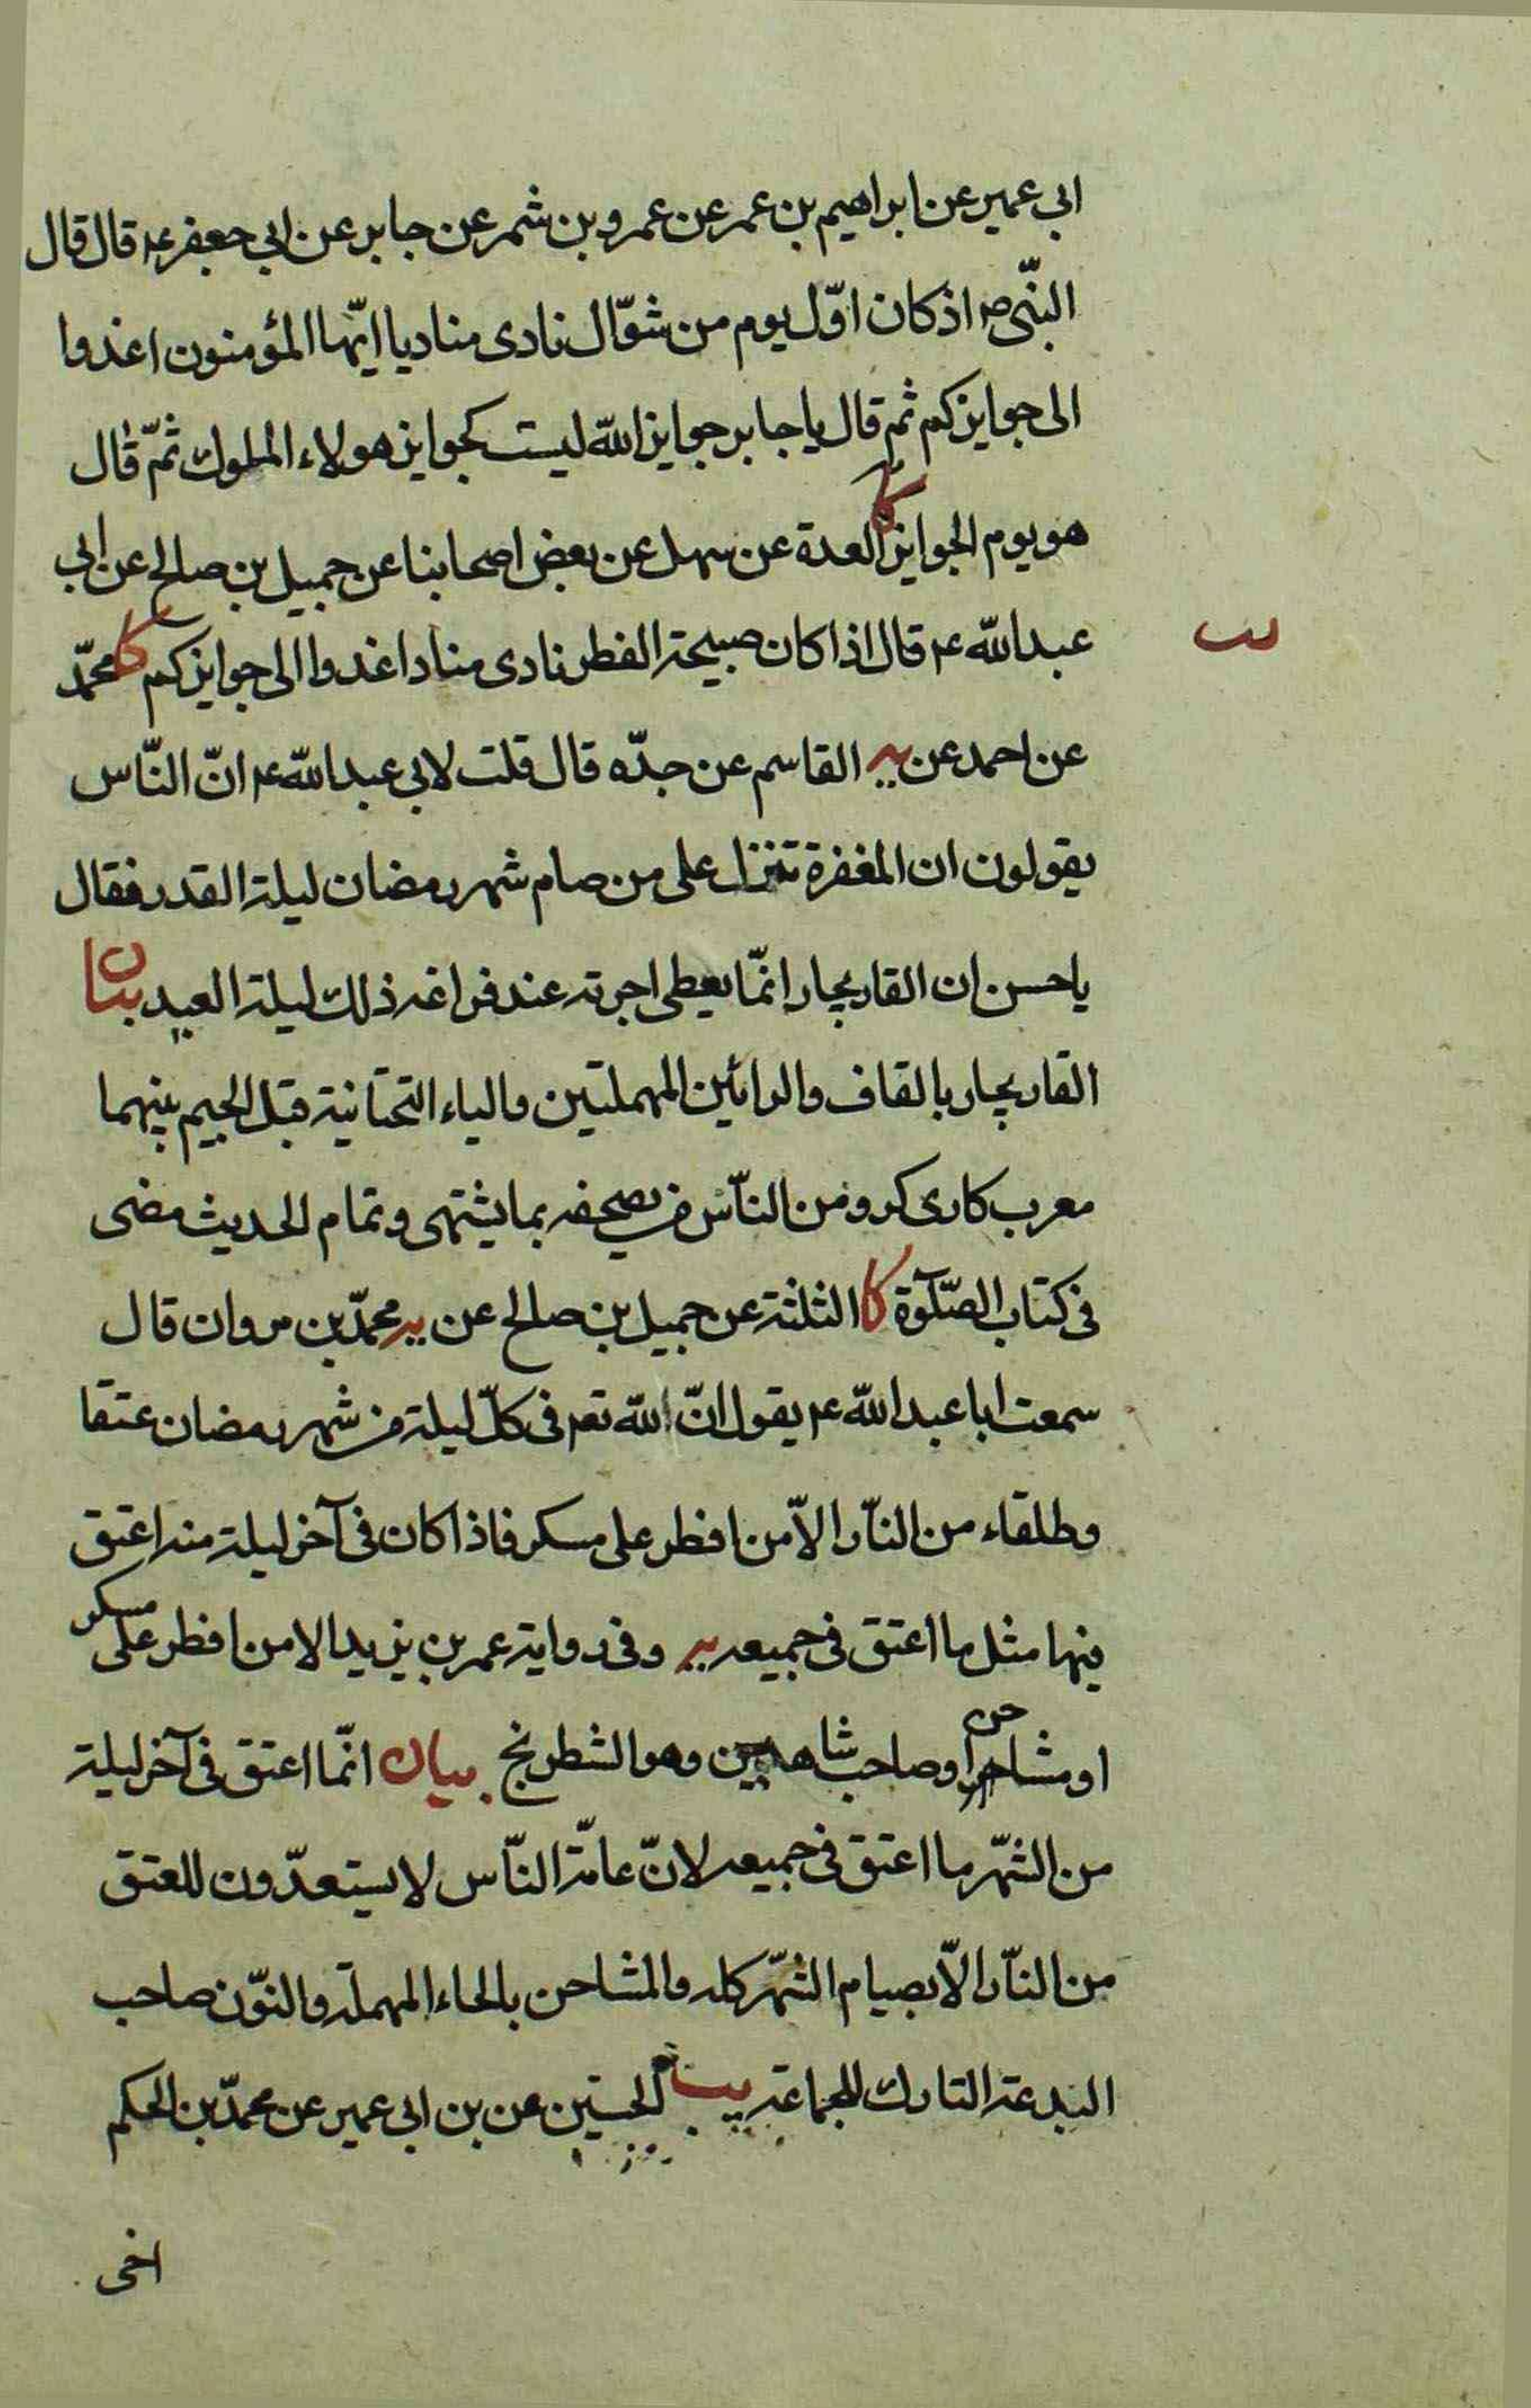 ابى عمير عن ابراهيم بن عمر عن عمرو بن شمر عن جابر عن ابى جعفر ع قال قال
النّبى ص اذ كان اوّل يوم من شوّال نادى مناد يا ايّها المؤمنون اغدوا
الى جوايزكم ثم قال يا جابر جوايز الله ليست كجوايز هولاء الملوك ثمّ قال
هو يوم الجوايز كا العدة عن سهل عن بعض اصحابنا عن جميل بن صالح عن ابى
عبد الله ع قال اذا كان صبيحة الفطر نادى مناد اغدوا الى جوايزكم كا محمّد
عن احمد عن يه القاسم عن جدّه قال قلت لابى عبد الله ع انّ النّاس
يقولون ان المغفرة تنزل على من صام شهر رمضان ليلة القدر فقال
يا حسن ان القاريجار انّما يعطى اجرته عند فراغه ذلك ليلة العيد بيان
القاريجار بالقاف والرائين المهملتين والياء التحتانية قبل الجيم بينهما
معرب كارى كر ومن النّاس من يصحفه بما يشتهى وتمام الحديث مضى
فى كتاب الصّلوة كا الثلثة عن جميل بن صالح عن يه محمّد بن مروان قال
سمعت ابا عبد الله ع يقول انّ الله تع فى كلّ ليلة من شهر رمضان عتقا
وطلقاء من النّار الاّ من افطر على مسكر فاذا كان فى آخر ليلة منه اعتق
فيها مثل ما اعتق فى جميعه يه وفى رواية عمر بن يزيد الا من افطر على مسكر
او مشاحن او صاحب شاهين وهو الشطرنج بيان انّما اعتق فى آخر ليلة
من الشّهر ما اعتق فى جميعه لانّ عامّة النّاس لا يستعدّون للعتق
من النّار الاّ بصيام الشّهر كله والمشاحن بالحاء المهملة والنّون صاحب
البدعة التارك للجماعة يب الحسين عن بن ابى عمير عن محمّد بن الحكم
اخى